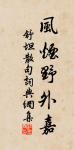 風煙野外嘉
舒坦散句詞典網集